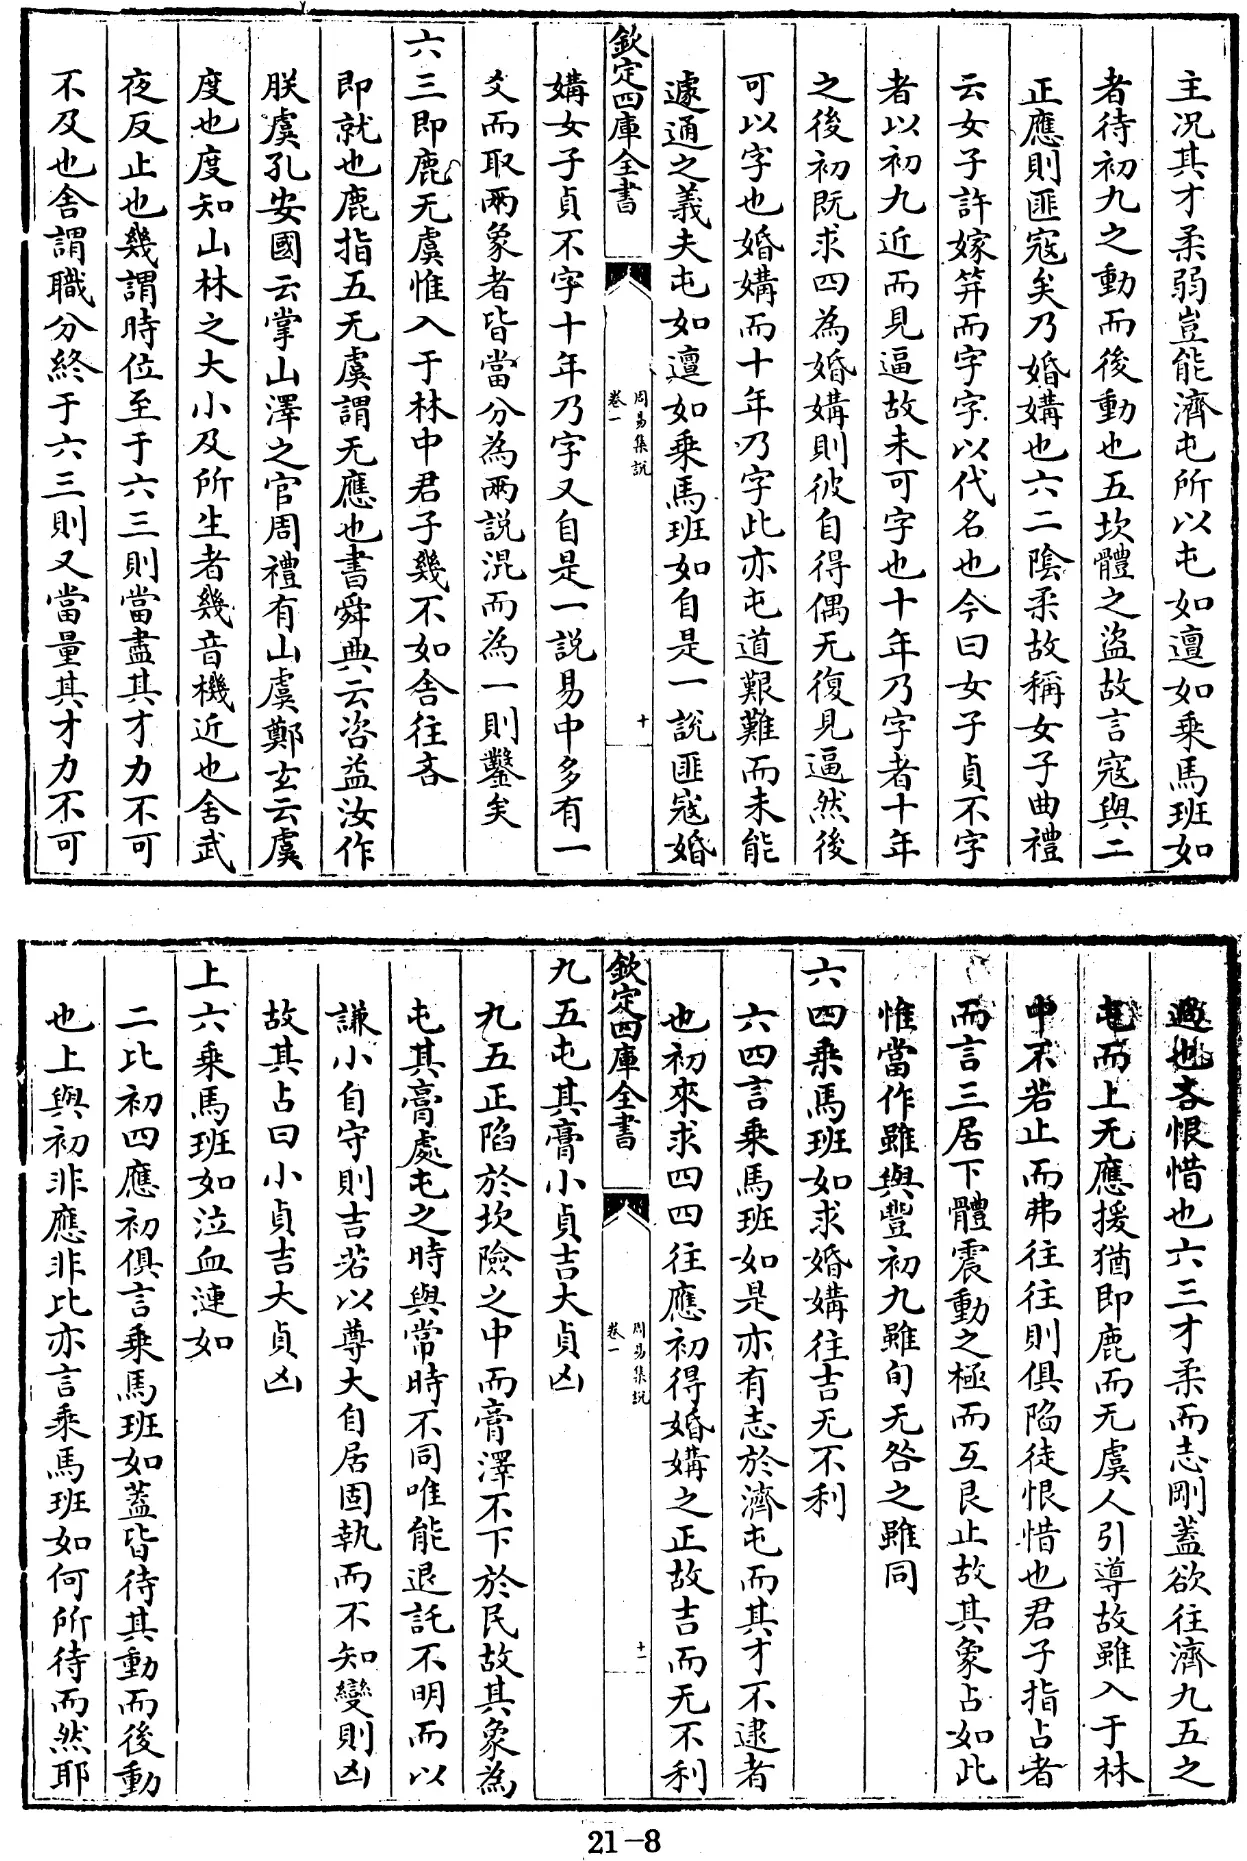 主况其才柔弱豈能濟屯所以屯如邅如乘馬班如
者待初九之動而後動也五坎體之盜故言寇與二
正應則匪寇矣乃婚媾也六二陰柔故稱女子曲禮
云女子許嫁笄而字字以代名也今曰女子貞不字
者以初九近而見逼故未可字也十年乃字者十年
之後初既求四為婚媾則彼自得偶无復見逼然後
可以字也婚媾而十年乃字此亦屯道艱難而未能
遽通之義夫屯如邅如乘馬班如自是一說匪寇婚
欽定四庫全書
周易集說
卷一
十
媾女子貞不字十年乃字又自是一說易中多有一
爻而取兩象者皆當分為兩說混而為一則鑿矣
六三即鹿无虞惟入于林中君子幾不如舍往吝
即就也鹿指五无虞謂无應也書舜典云咨益汝作
朕虞孔安國云掌山澤之官周禮有山虞鄭玄云虞
度也度知山林之大小及所生者幾音機近也舍武
夜反止也幾謂時位至于六三則當盡其才力不可
不及也舍謂職分終于六三則又當量其才力不可
過也吝恨惜也六三才柔而志剛蓋欲往濟九五之
屯而上无應援猶即鹿而无虞人引導故雖入于林
中不若止而弗往往則俱陷徒恨惜也君子指占者
而言三居下體震動之極而互艮止故其象占如此
惟當作雖與豐初九雖旬无咎之雖同
六四乘馬班如求婚媾往吉无不利
六四言乘馬班如是亦有志於濟屯而其才不逮者
也初來求四四往應初得婚媾之正故吉而无不利
欽定四庫全書
周易集說
卷一
十一
九五屯其膏小貞吉大貞凶
九五正陷於坎險之中而膏澤不下於民故其象為
屯其膏處屯之時與常時不同唯能退託不明而以
謙小自守則吉若以尊大自居固執而不知變則凶
故其占曰小貞吉大貞凶
上六乘馬班如泣血漣如
二比初四應初俱言乘馬班如蓋皆待其動而後動
也上與初非應非比亦言乘馬班如何所待而然耶
21-8